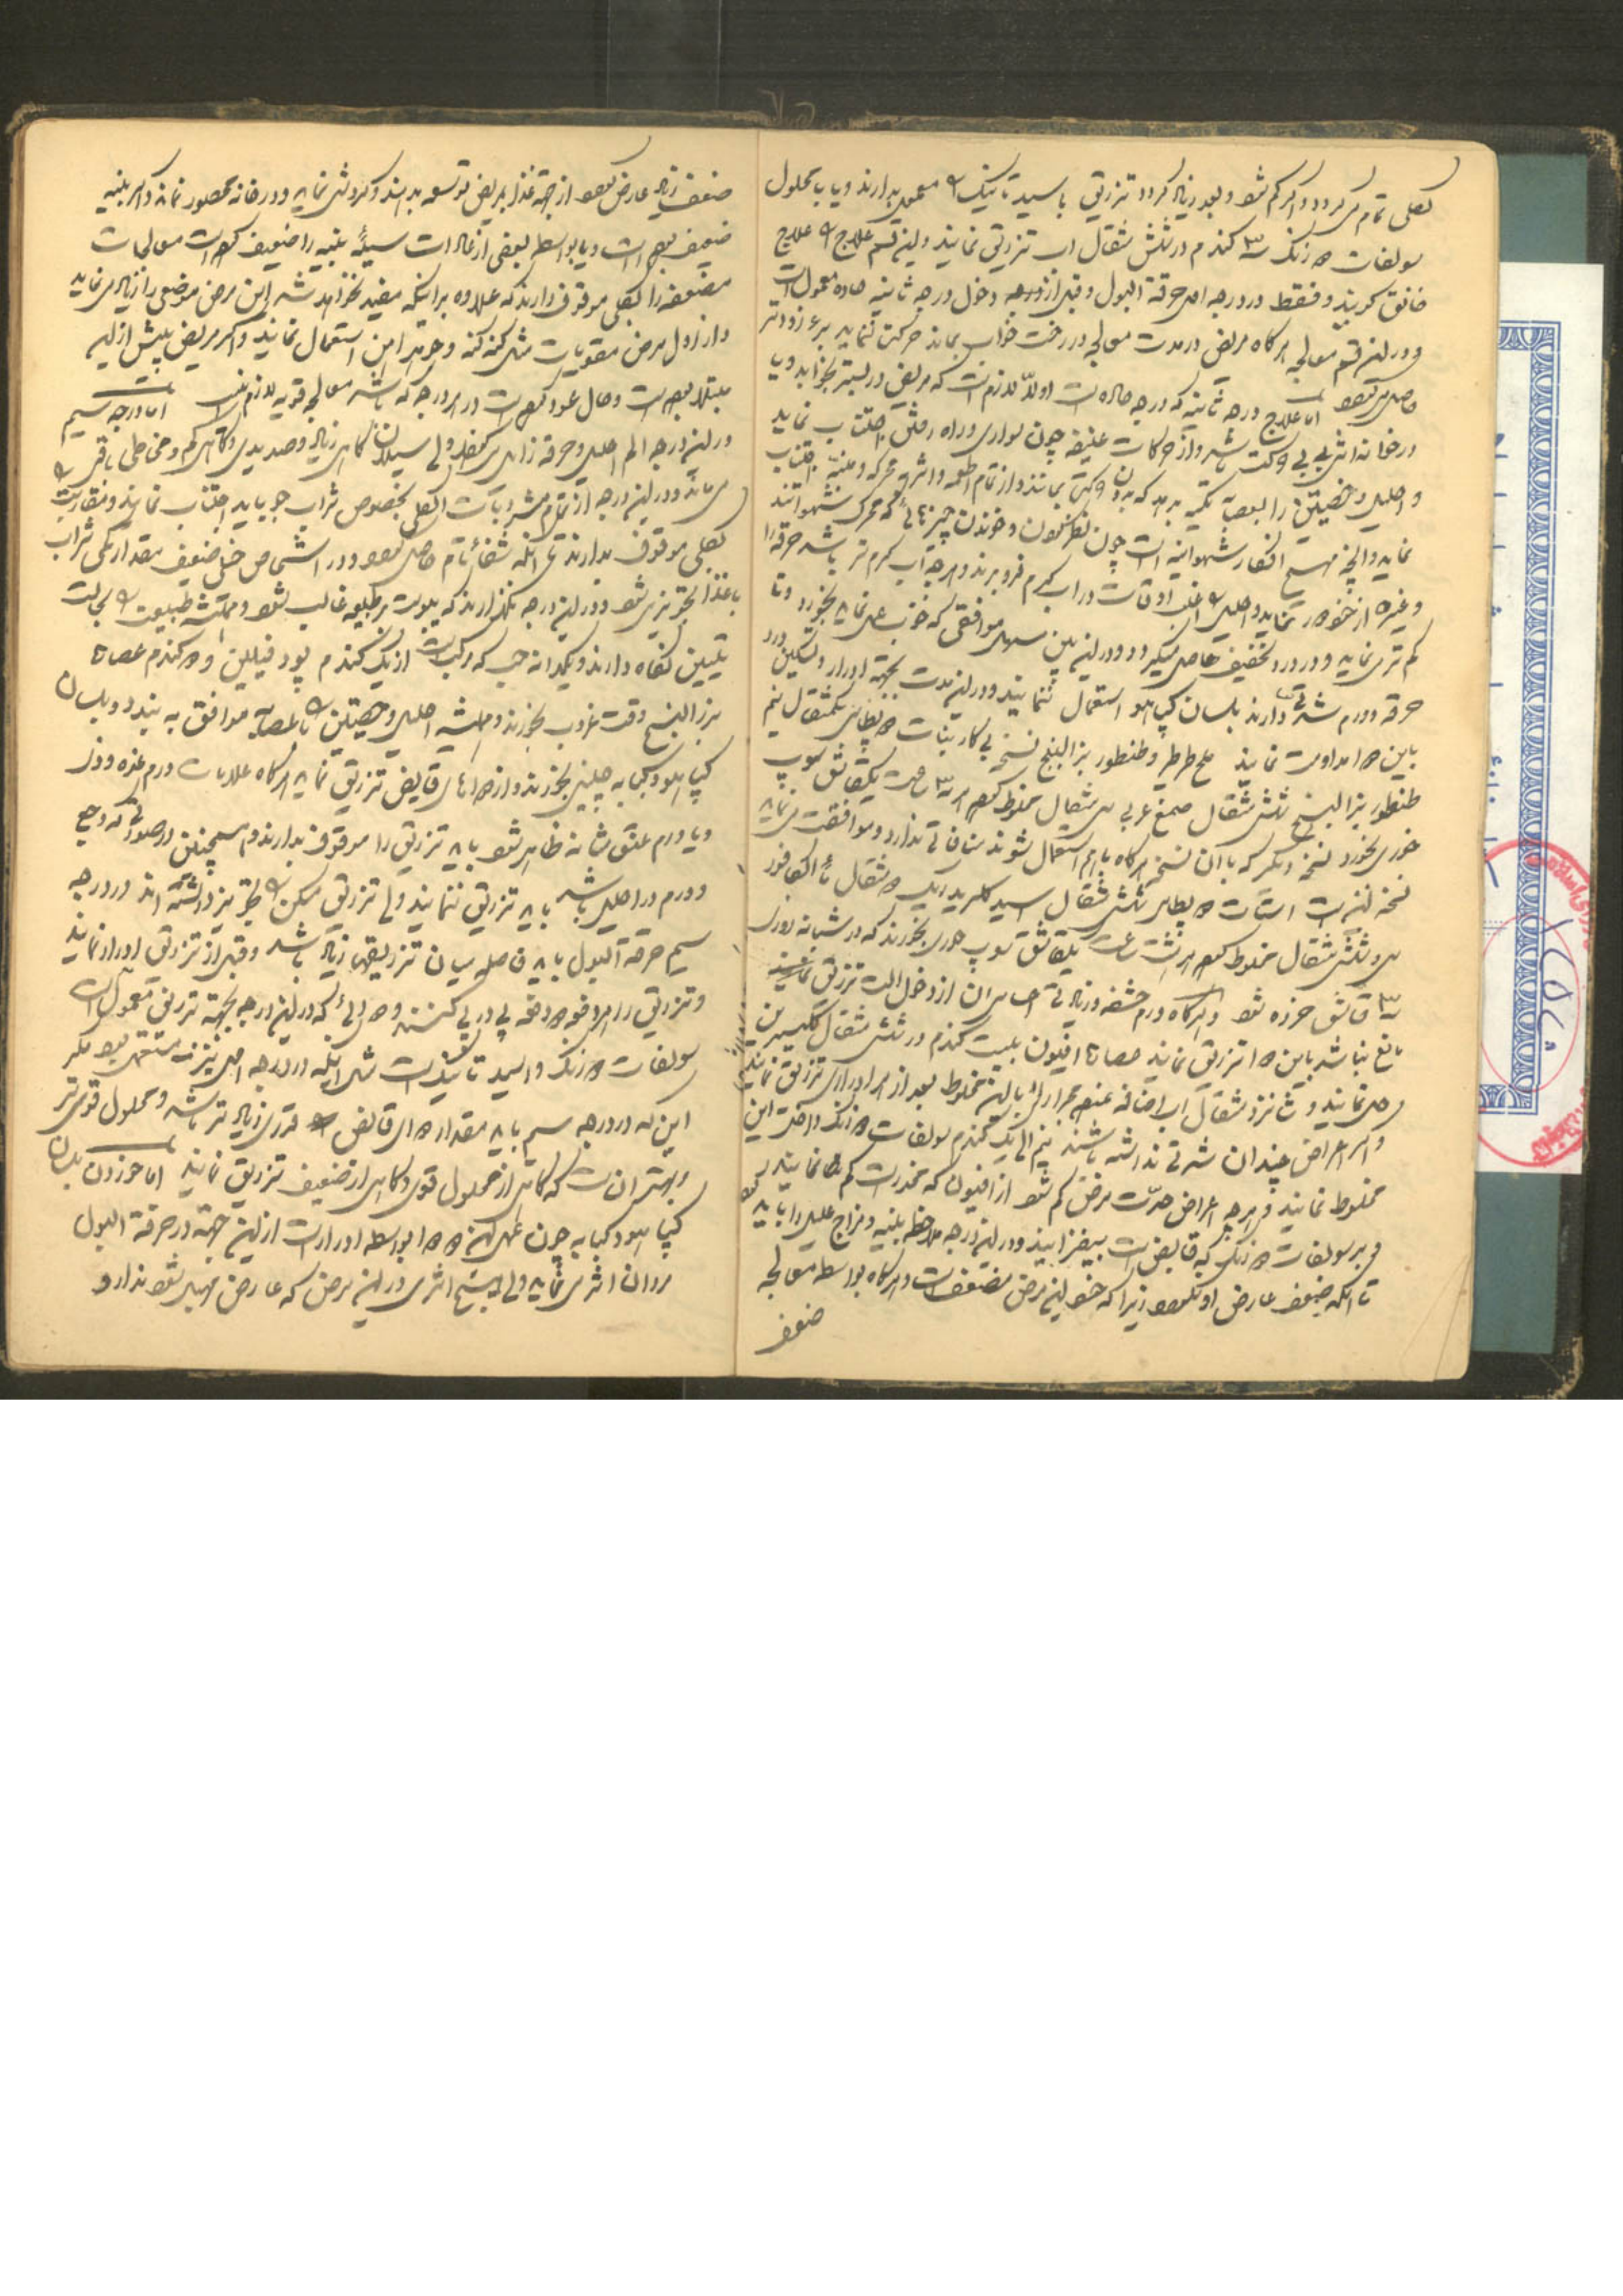 بکلی تمام می‌گردد و اگر کم شود و بعد زیاد گردد تزریق با سید تانیک معمول بدارند و یا با محلول
سولفات دوزنک ۳ گندم در شش مثقال آب تزریق نمایند و این قسم علاج را علاج
خانق گویند و فقط در درجه اول حرقة البول و قبل از دخول درجه ثانیه حاده معمول است
و در این قسم معالجه هرگاه مریض در مدت معالجه در رخت خواب بماند حرکت ننماید برء زودتر
حاصل می‌شود اما علاج درجه ثانیه که درجه حاده است اولاً لازم است که مریض در بستر بخوابد و یا
در خانه‌اش بی حرکت باشد و از حرکات عنیفه چون سواری و راه رفتن اجتناب نماید
و احلیل و خصیتین را بعصابه تکیه بدهد که بدون حرکت بمانند و از تمام اطعمه و اشربه محرکه و منبّه اجتناب
نماید و آنچه مهیج افکار شهوانیه است چون نظر نمودن و خواندن چیزهائی که محرک شهوتند
و غیره از خود دور نماید و احلیل را اغلب اوقات در آب گرم فرو برند و هرچه آب گرم تر باشد حرقه را
کم تر می‌نماید و در درد تخفیف حاصل میگردد و در این بین مسهل موافقی که خوب عمل نماید بخورد و تا
حرقه و ورم شدتی دارند بلسان کپاهو استعمال ننمایند و در این مدت بجهة ادرار و تسکین درد
باین دوا مداومت نمایند ملح طرطیر و طنطور بزرالبنج نسخه بی کاربنات دو پطاس یکمثقال نیم
طنطور بزرالبنج ثلث مثقال صمغ عربی سی مثقال مخلوط کرده هر ۳ ساعت یک قاشق سوپ
خوری بخورد نسخه دیگر که با آن نسخه هرگاه با هم استعمال شوند منافاتی ندارد و موافقت می‌نماید
نسخه این است استات دو پطاس ثلث مثقال اسید کلریدریک دو مثقال ماء الکافور
سی و شش مثقال مخلوط کرده هر شش ساعت یک قاشق سوپ خوری بخورند که در شبانه روزی
۳ قاشق خورده شود و هرگاه ورم حشفه و زیادتی احساس آن از دخول آلت تزریق
مانع نباشد باین دوا تزریق نمایند عصاره افیون بیست گندم در شش مثقال گلیسرین
حل نمایند و شانزده مثقال آب اضافه نموده هر بار با این مخلوط بعد از هر ادراری تزریق نمایند
و اگر اعراض چندان شدتی نداشته باشند نیم الی یک گندم سولفات دوزنک داخل این
مخلوط نمایند و هرچه اعراض حدّت مرض کم شود از افیون که مخدر است کم نمایند
و بر سولفات دوزنک که قابض است بیفزایند و در این درجه ملاحظه بنیه و مزاج علیل را باید نمود
تا آنکه ضعف عارض او نگردد زیرا که خود این مرض مضعف است و هرگاه بواسطه معالجه
ضعف
ضعف زیاد عارض شود از جهة غذا بمریض توسعه بدهند و گردش نماید و در خانه محصور نماند و اگر بنیه
ضعیف بوده است و یا بواسطه بعضی از عادات سیئه بنیه را ضعیف کرده است معالجات
مضعفه را بکلی موقوف دارند که علاوه بر اینکه مفید نخواهد شد این مرض موضعی را زیاد می‌نماید
و از اول مرض مقویات مثل گنه گنه و جوهر آهن استعمال نمایند و اگر مریض پیش از این
مبتلا بوده است و حال عود کرده است در هر درجه که باشد معالجه قویه لازم نیست اما درجه سیم
در این درجه الم احلیل و حرقه زایل می‌شود ولی سیلان گاهی زیاد و صدیدی و گاهی کم و مخاطی باقی
می‌ماند و در این درجه از تمام مشروبات الکلی بخصوص شراب جو باید اجتناب نمایند و مقاربت
بکلی موقوف بدارند تا آنکه شفای تام حاصل شود و در اشخاص خیلی ضعیف مقدار کمی شراب
با غذا تجویز می‌شود و در این درجه نگذارند که یبوست بر طبیعه غالب شود و همیشه طبیعت را بحالت
تلیین نگاه دارند و یکدانه حب که مرکب است از یک گندم پودوفیلین و دو گندم عصاره
بزرالبنج وقت غروب بخورند و همیشه احلیل و خصیتین را با عصابه موافق به بندند و بلسان
کپاهو و کبابه چینی بخورند و از دواهای قابض تزریق نمایند هرگاه علامات ورم غده وذی
و یا ورم عنق مثانه ظاهر شود باید تزریق را موقوف بدارند و همچنین در صورتی که وجع
و ورم در احلیل باشد باید تزریق ننمایند ولی تزریق مسکن را تجویز دانسته‌اند در درجه
سیم حرقة البول باید فاصله میان تزریقها زیاد باشد و قبل از تزریق ادرار نمایند
و تزریق را هر دفعه دو دفعه پی در پی کنند و دوائی که در این درجه بجهة تزریق معمول است
سولفات دوزنک و اسید تانیک است مثل آنکه در درجه اول نیز مستعمل بود مگر
این که در درجه سیم باید مقدار دوای قابض قدری زیاد تر باشد و محلول قوی تر
و بهتر آن است که گاهی از محلول قوی و گاهی از ضعیف تزریق نمایند اما خوردن بلسان
کپاهو و کبابه چون عمل این دو دوا بواسطه ادرار است از این جهة در حرقة البول
مردان اثر می‌نماید ولی هیچ اثری در این مرض که عارض مهبل شود ندارد